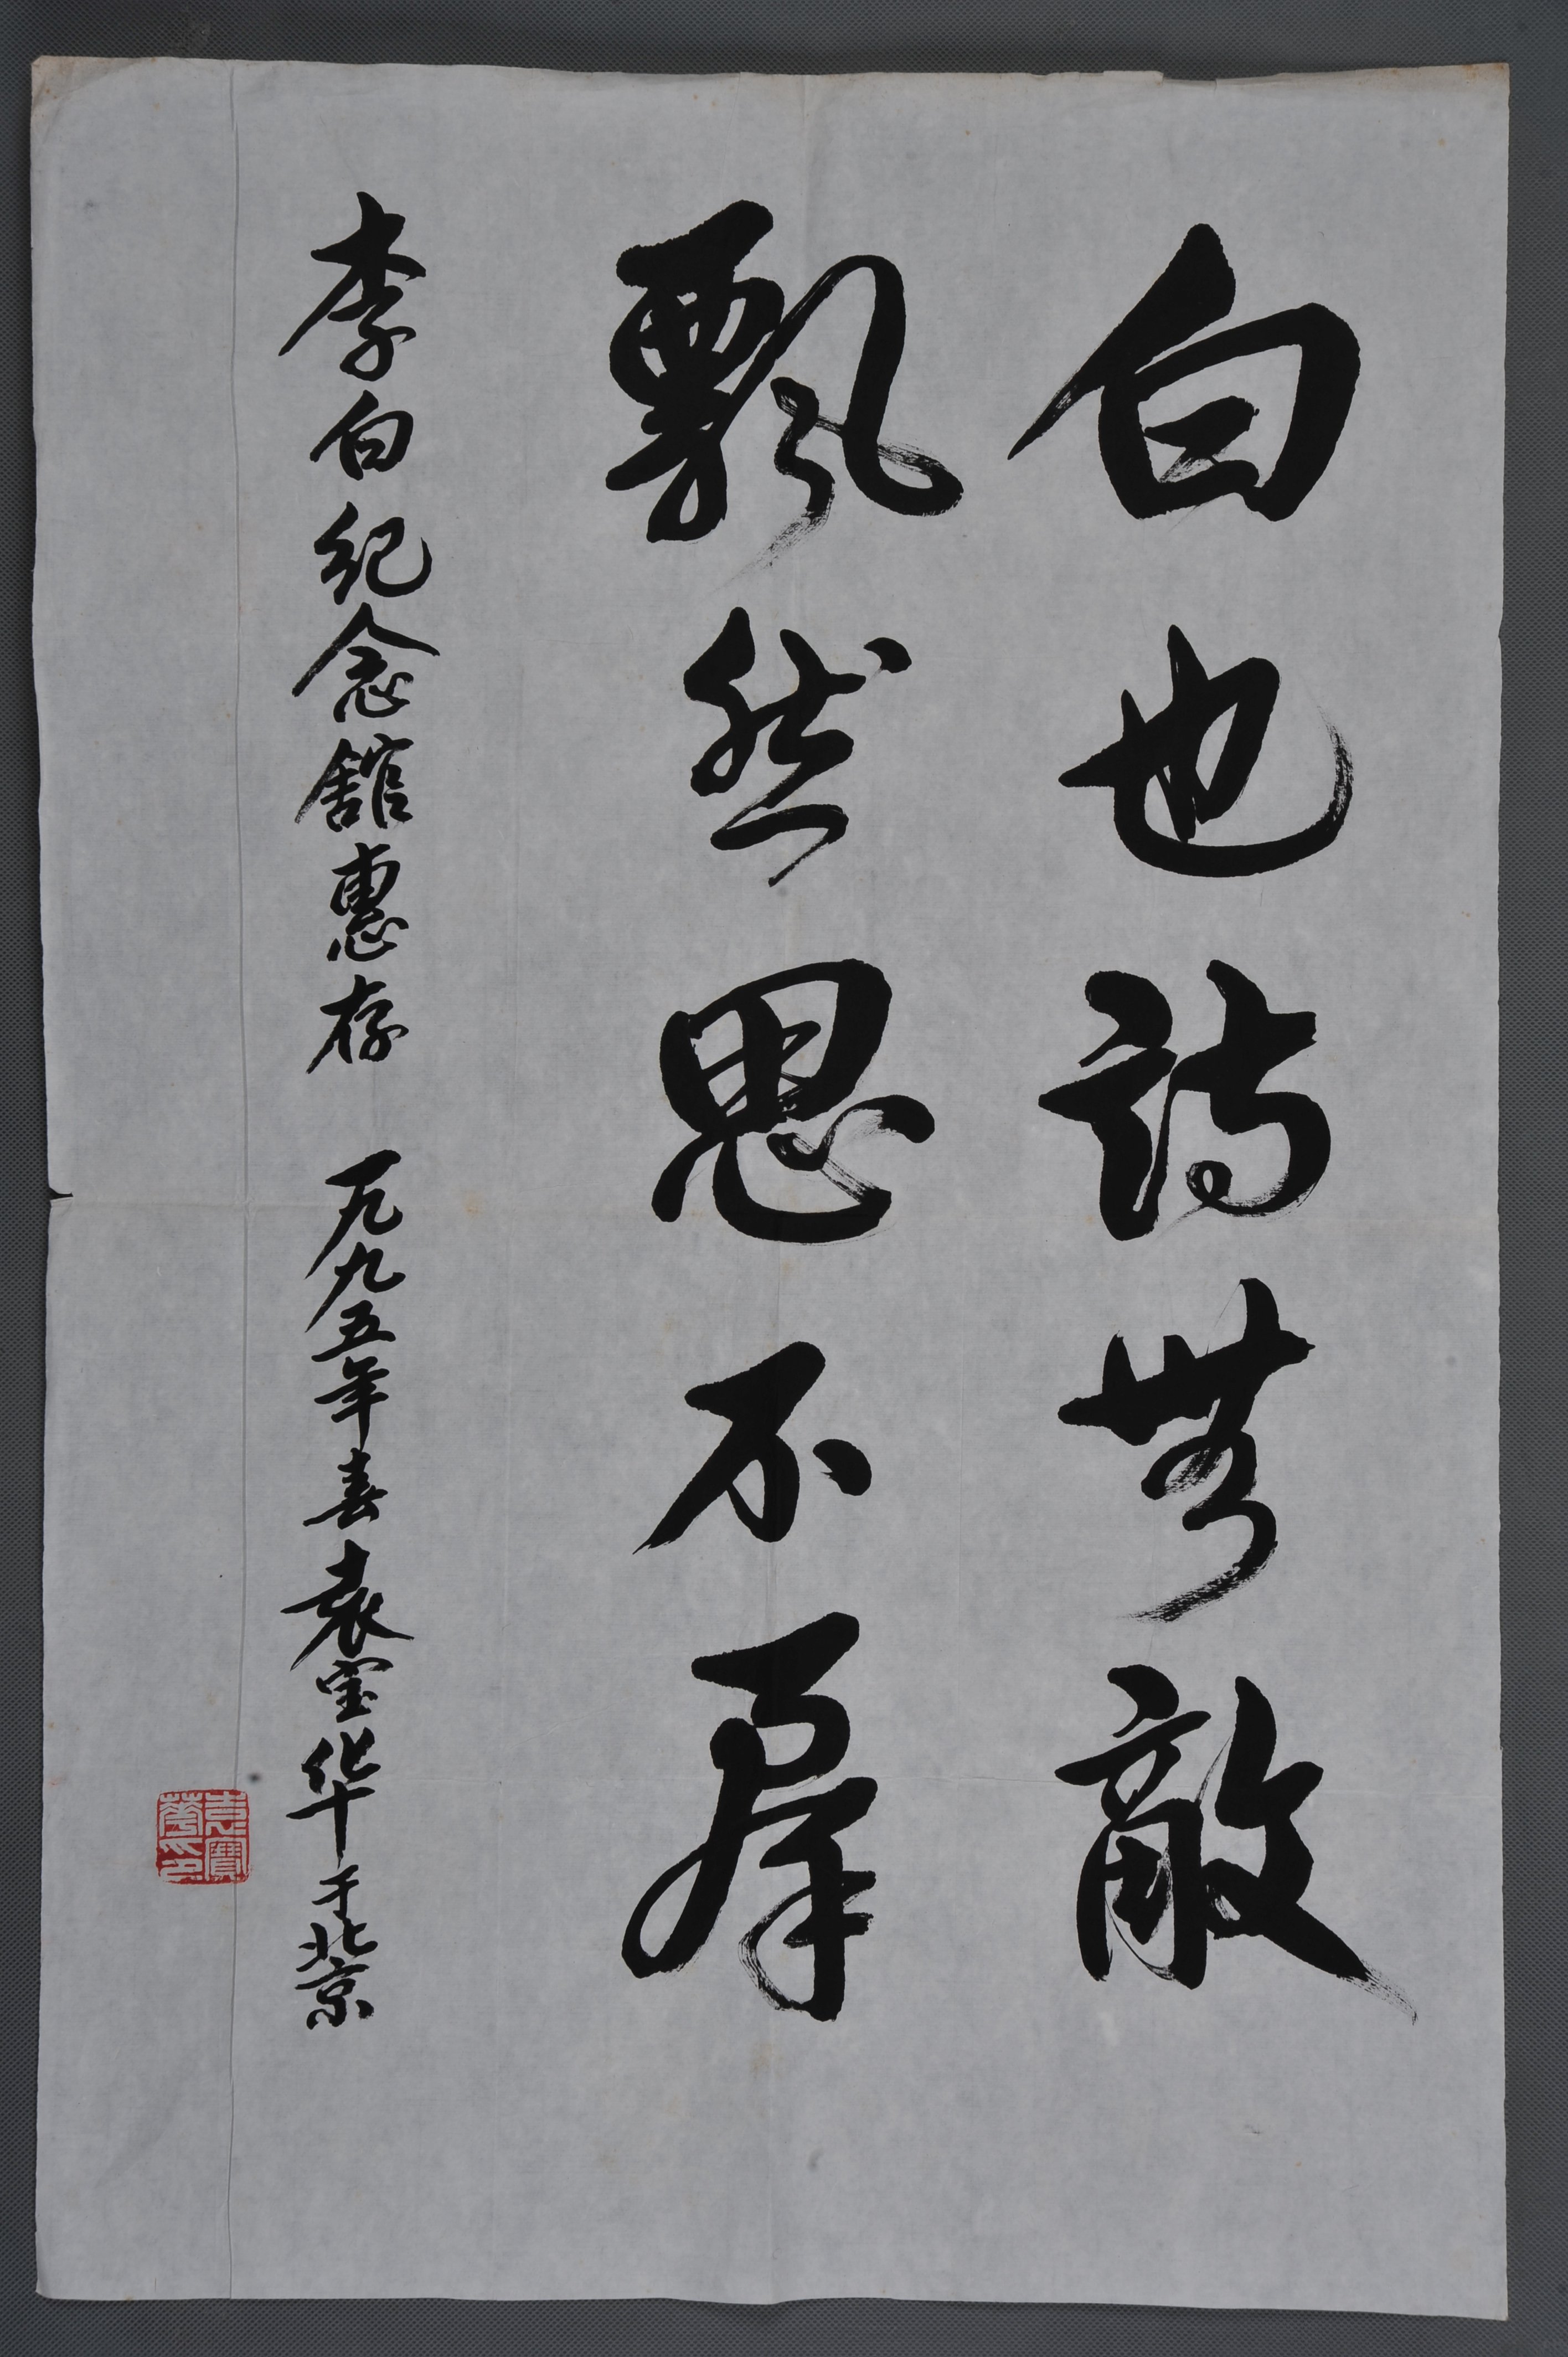 白也詩無敵
飄然思不羣
李白纪念館惠存 一九九五年春袁宝华于北京
袁寶華印